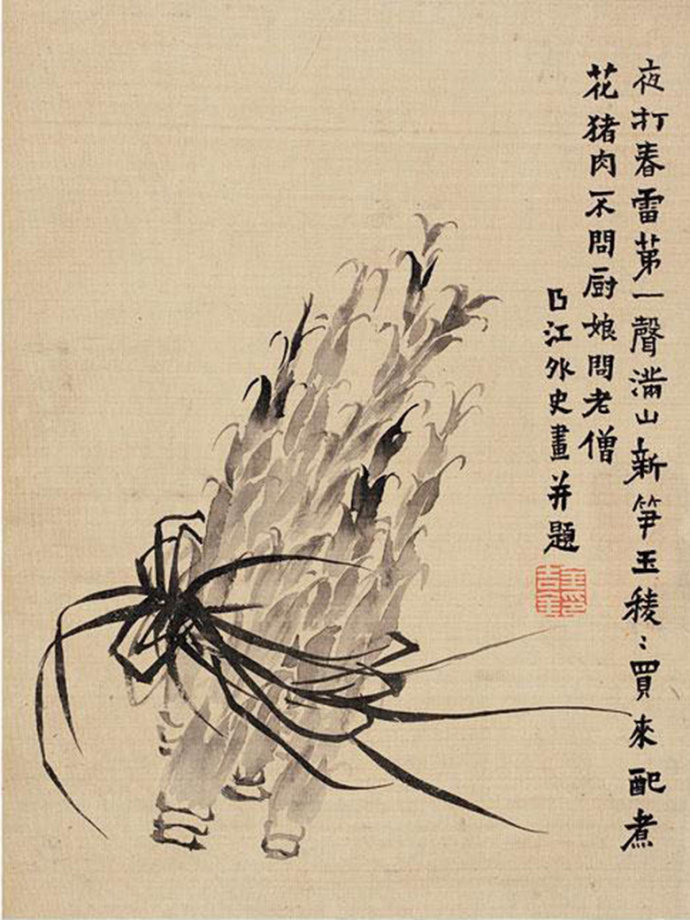 夜打春雷苐一聲滿山新笋玉稜:買來配煮
花猪肉不問厨娘問老僧
曲江外史畫并題